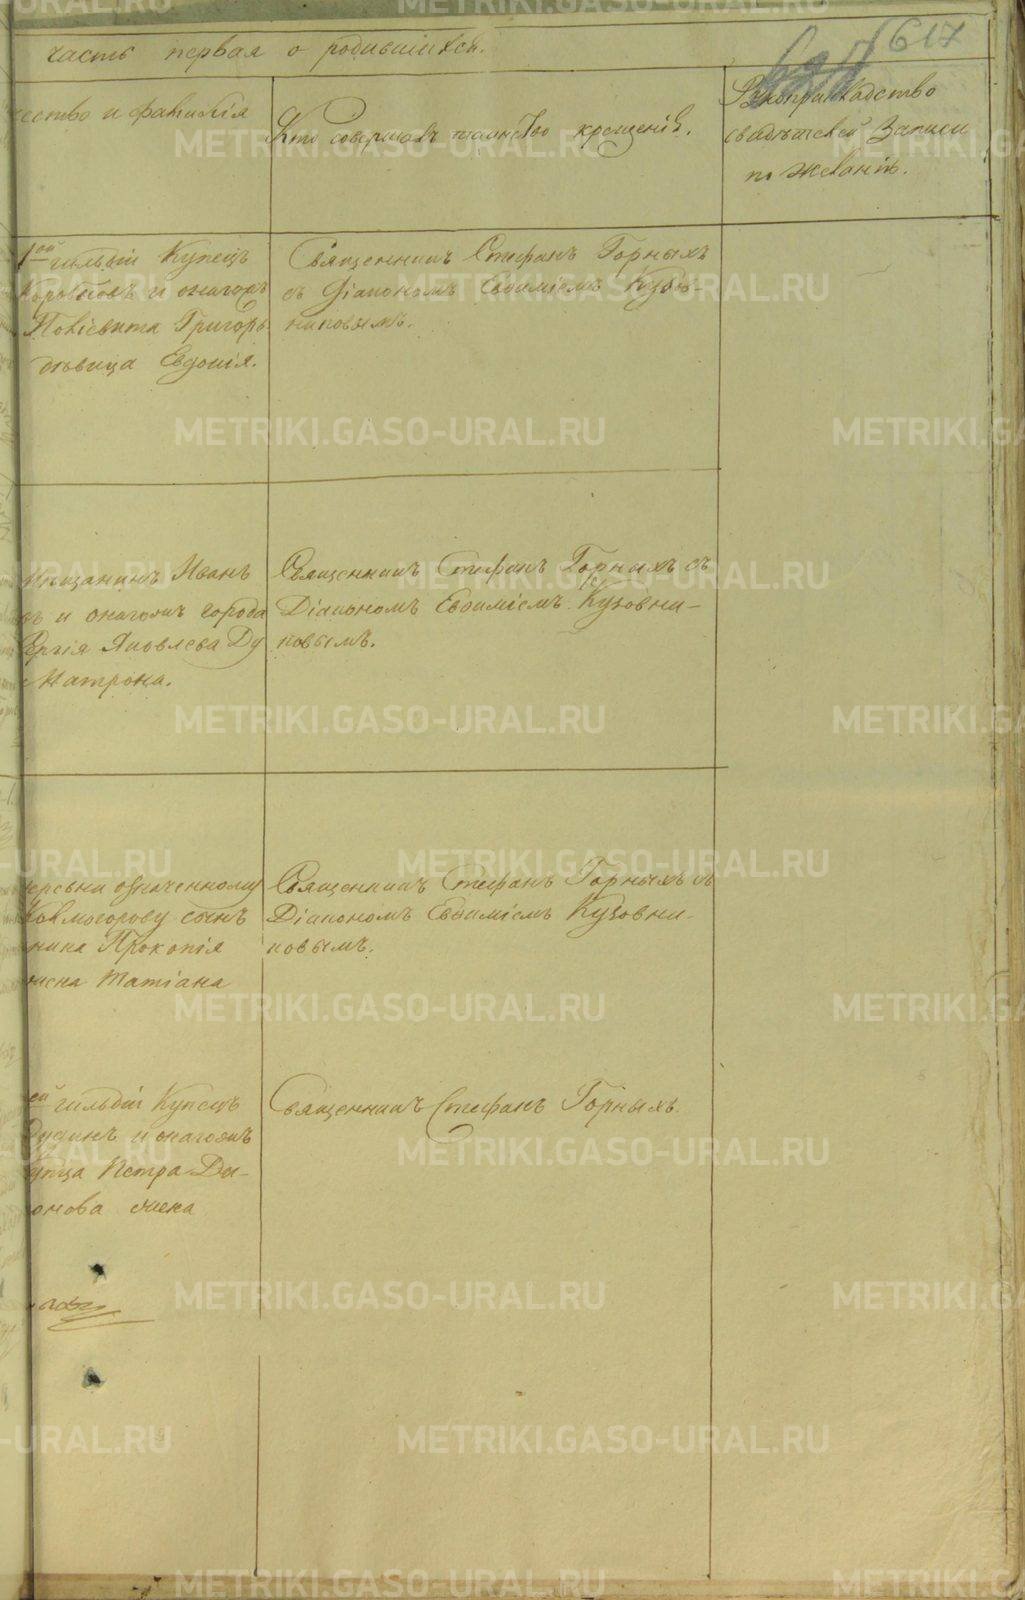 617
часть первая о родившихся.
ество и фамилія
Кто совершалъ таинство крещенія.
Рукоприкладство
свидѣтелей записи
по желанію.
1ой гильдіи Купецъ
Коровковъ и онагожъ
Григорь
дѣвица Евдокія.
Священникъ Стефанъ Горныхъ
съ Діакономъ Евѳиміемъ Кузов
никовымъ.
Мѣщанинъ Иванъ
въ и онагожъ города
Сергія Яковлева Ду
Матрона.
Священникъ Стефанъ Горныхъ съ
Діакономъ Евѳиміемъ Кузовни-
ковымъ.
деревни означенному
Колмогорову сынъ
нина Прокопія
жена Татіана
Священникъ Стефанъ Горныхъ съ
Діакономъ Евѳиміемъ Кузовни-
ковымъ.
ей гильдіи Купецъ
Дудинъ и онагожъ
купца Петра Ди-
онова жена
Священникъ Стефанъ Горныхъ.
METRIKI.GASO-URAL.RU